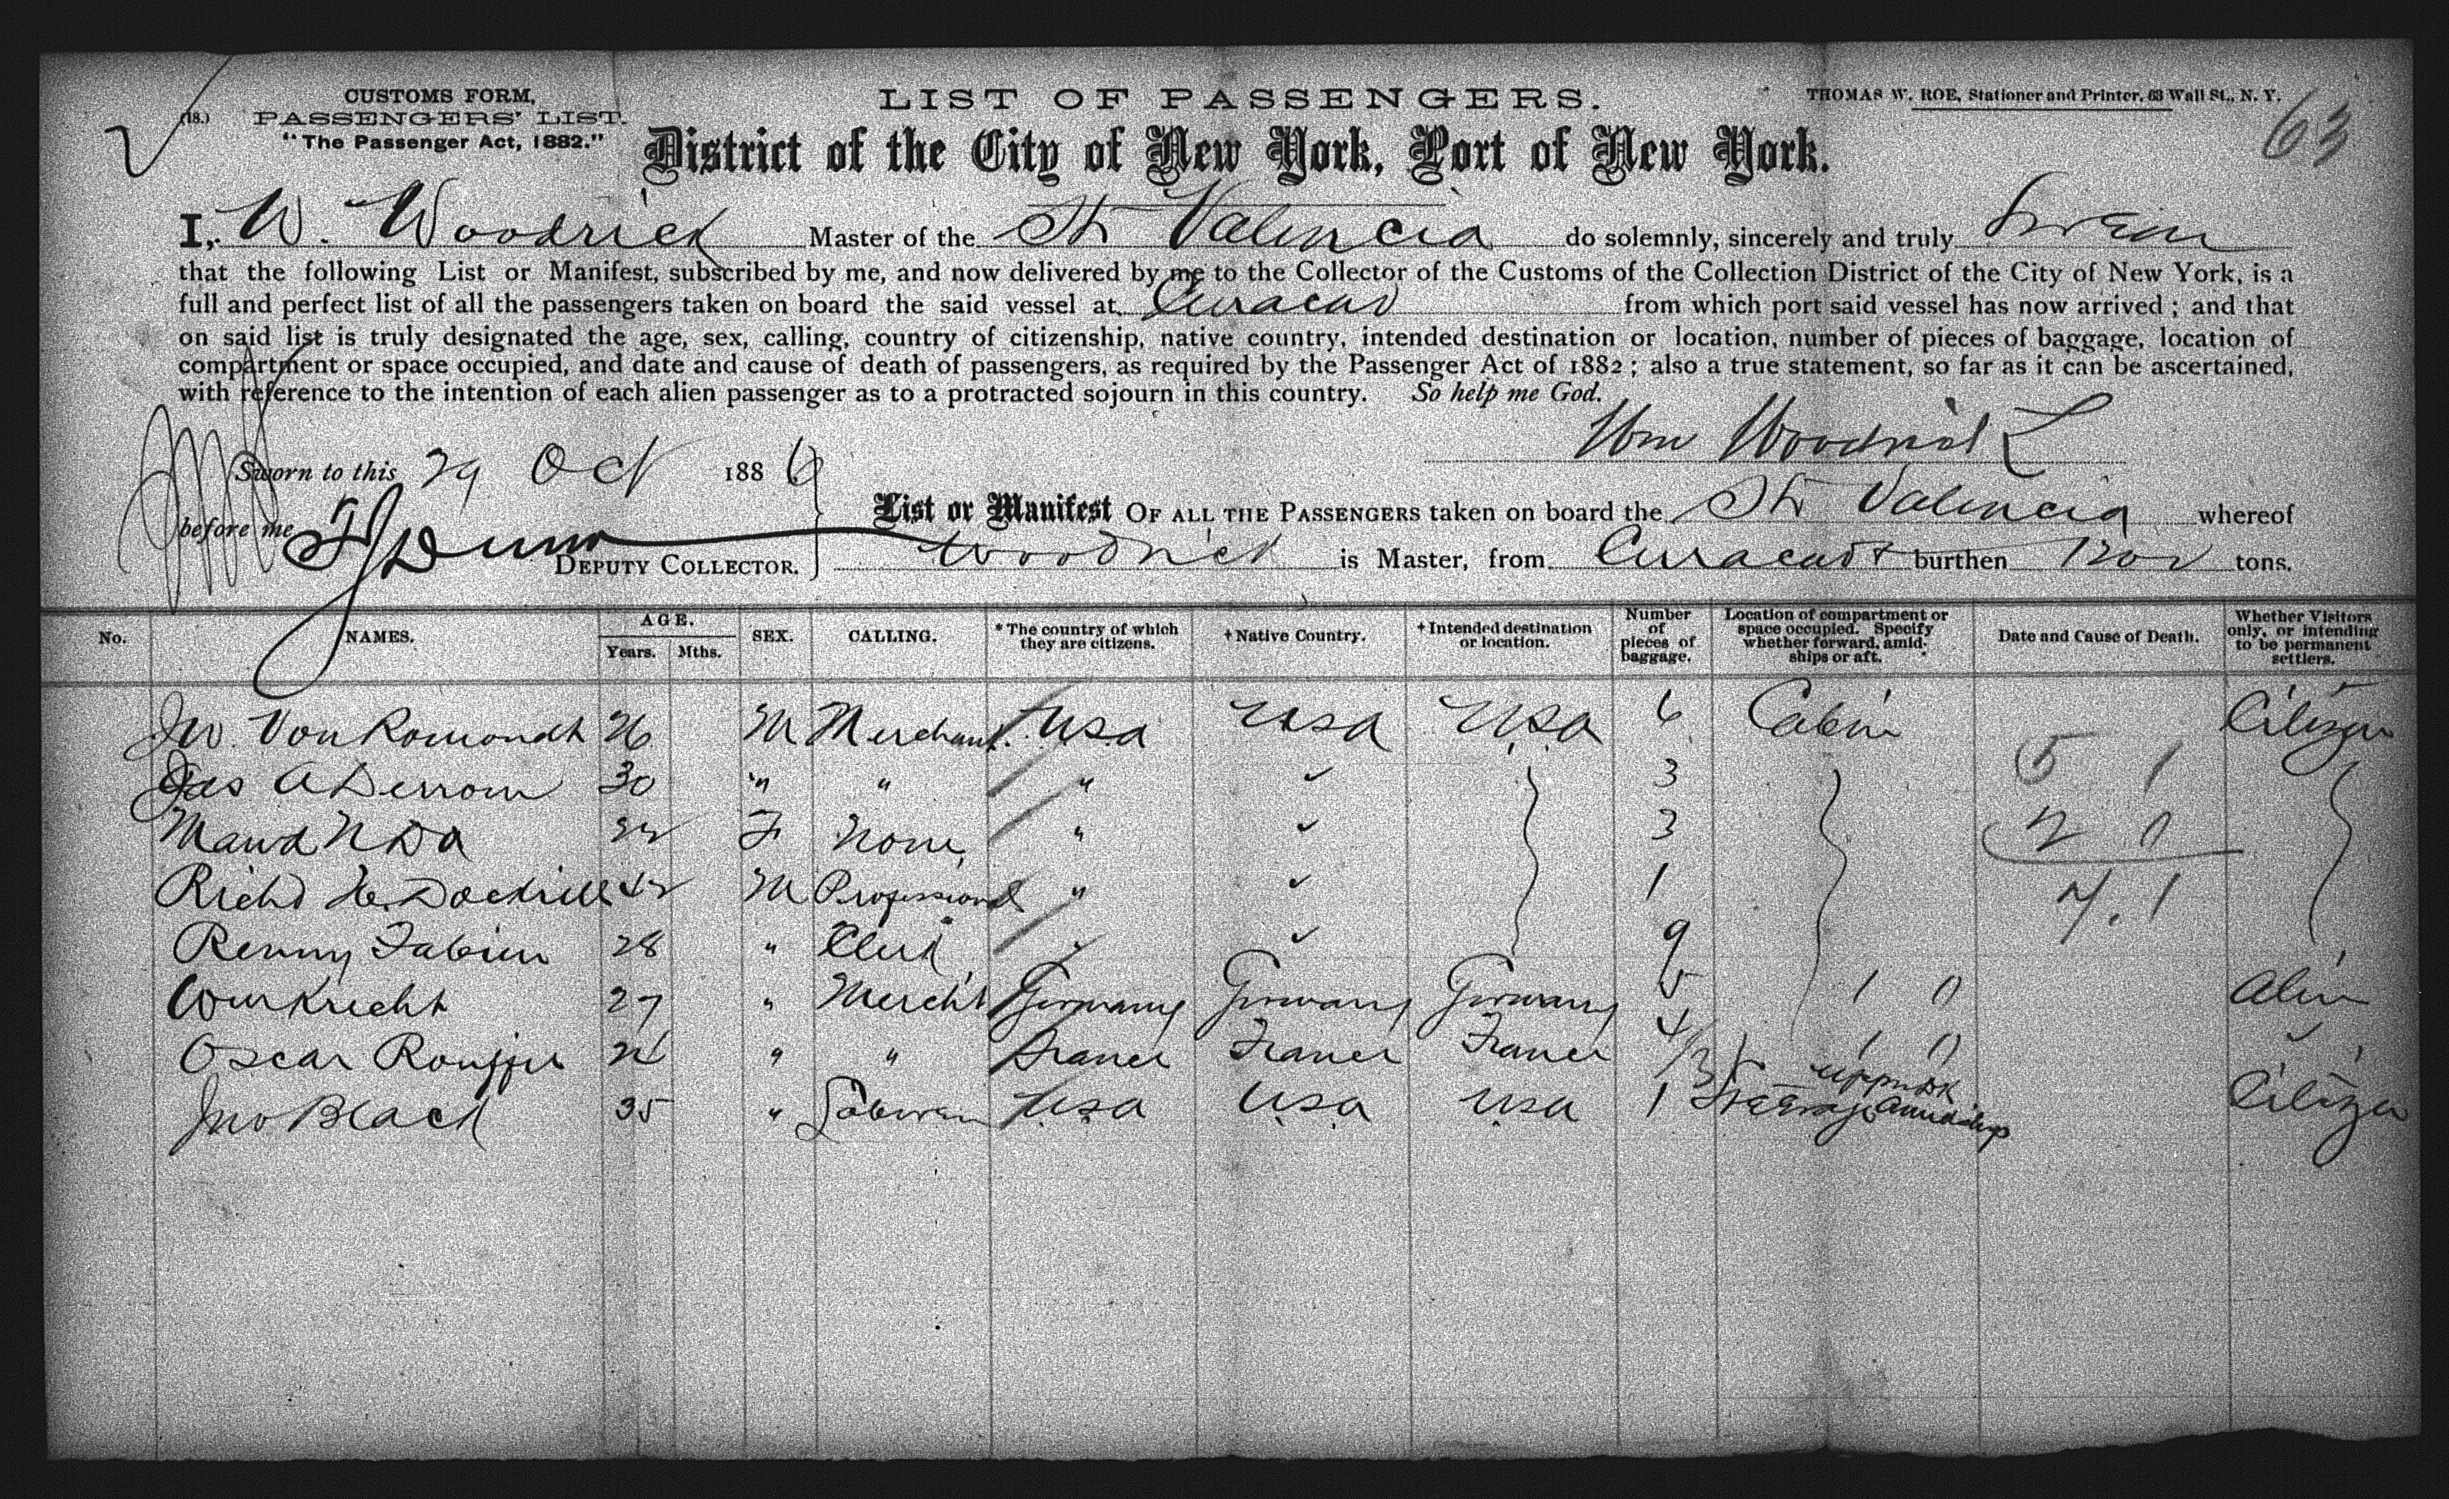 (18.) CUSTOMS FORM,
PASSENGERS' LIST.
"The Passenger Act, 1882."
LIST OF PASSENGERS.
THOMAS W. ROE, Stationer and Printer, 63 Wall St., N. Y.
63
District of the City of New York, Port of New York.
I, W. Woodrick Master of the Str Valencia do solemnly, sincerely and truly Swear
that the following List or Manifest, subscribed by me, and now delivered by me to the Collector of the Customs of the Collection District of the City of New York, is a
full and perfect list of all the passengers taken on board the said vessel at Curacao from which port said vessel has now arrived ; and that
on said list is truly designated the age, sex, calling, country of citizenship, native country, intended destination or location, number of pieces of baggage, location of
compartment or space occupied, and date and cause of death of passengers, as required by the Passenger Act of 1882 ; also a true statement, so far as it can be ascertained,
with reference to the intention of each alien passenger as to a protracted sojourn in this country. So help me God.
Wm Woodrick
Sworn to this 29 Oct 1886
before me
DEPUTY COLLECTOR.
List or Manifest OF ALL THE PASSENGERS taken on board the Str Valencia whereof
Woodrick is Master, from Curacao & burthen tons.
No. NAMES. AGE. Years. Mths. SEX. CALLING. * The country of which they are citizens. +Native Country. +Intended destination or location. Number of pieces of baggage. Location of compartment or space occupied. Specify whether forward, amidships or aft. Date and Cause of Death. Whether Visitors only, or intending to be permanent settlers.
Jw. Von Romondt 26 M Merchant U.S.a U.S.a U.S.a 6 Cabin Citizen
Jas A Derrom 30 " " " ✓ 3 5 1
Maud N Do F None " ✓ 3 2 0
Richd H. Dockrill 42 M Professional " ✓ 1 7.1
Renny Fabien 28 " Clerk ✓ 9
Wm Knecht 27 " Mercht Germany Germany Germany 5 1 0 Alien
Oscar " " France France France 4 1 0
Jno Black 35 " U.S.a U.S.a U.S.a 1 Steerage upper dk amidships Citizen